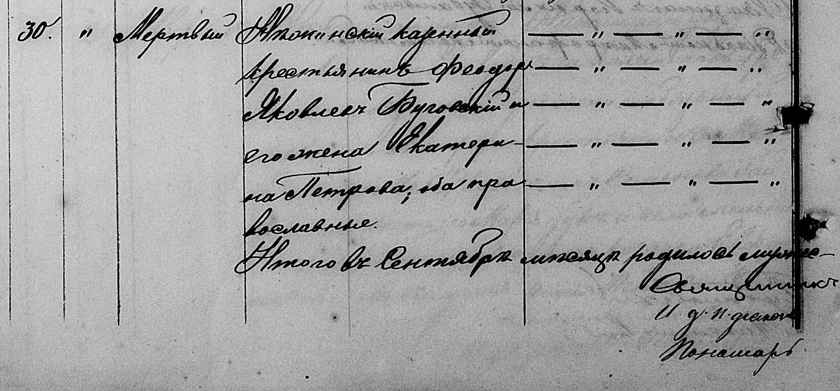 30. " Мертвый казенный — " — " — "
крестьянинъ Феодоръ — " — " — "
Яковлевъ Буговскій и — " — " — "
его жена Екатери- — " — " — "
на Петрова, оба пра — " — " — "
вославные.
Итого въ Сентябрѣ мѣсяцѣ родилось мужес-
Священникъ
И. д. п. дьякон
Пономарь